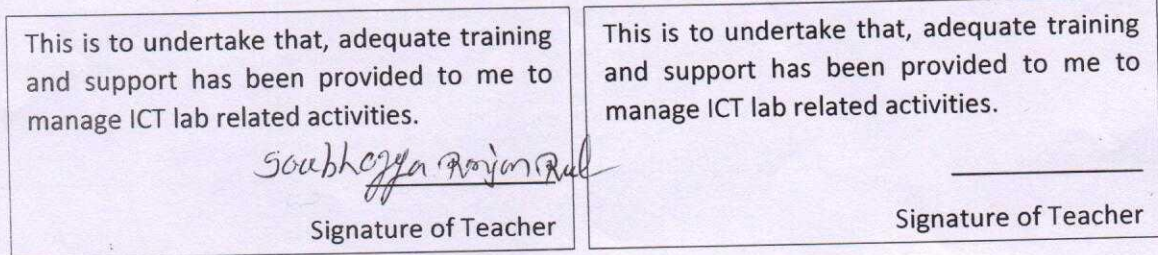 This is to undertake that, adequate training
and support has been provided to me to
manage ICT lab related activities.
Soubhagya Ranjan
Signature of Teacher
This is to undertake that, adequate training
and support has been provided to me to
manage ICT lab related activities.
Signature of Teacher